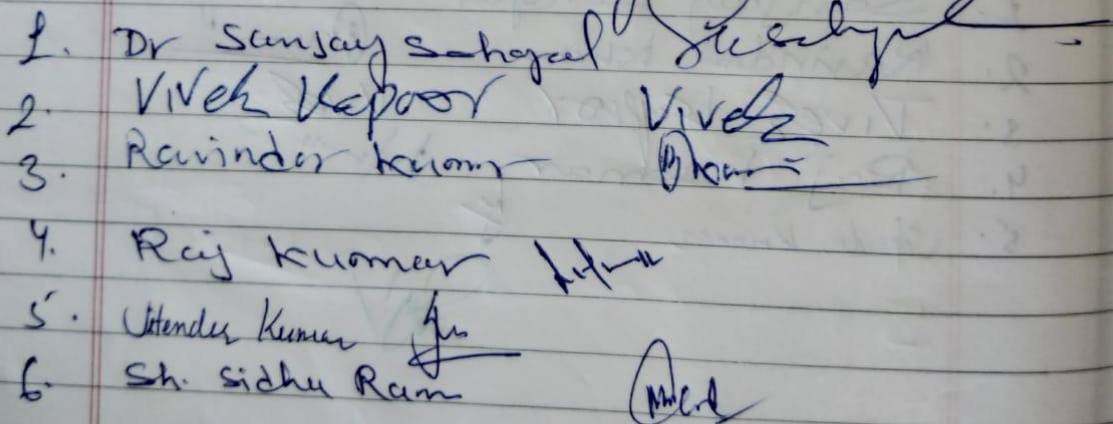 1. Dr Sanjay Sehgal
2. Vivek Kapoor Vivek
3. Ravinder Kumar
4. Raj Kuomar
5. Jitender Kumar
6. Sh. Sidhu Ram